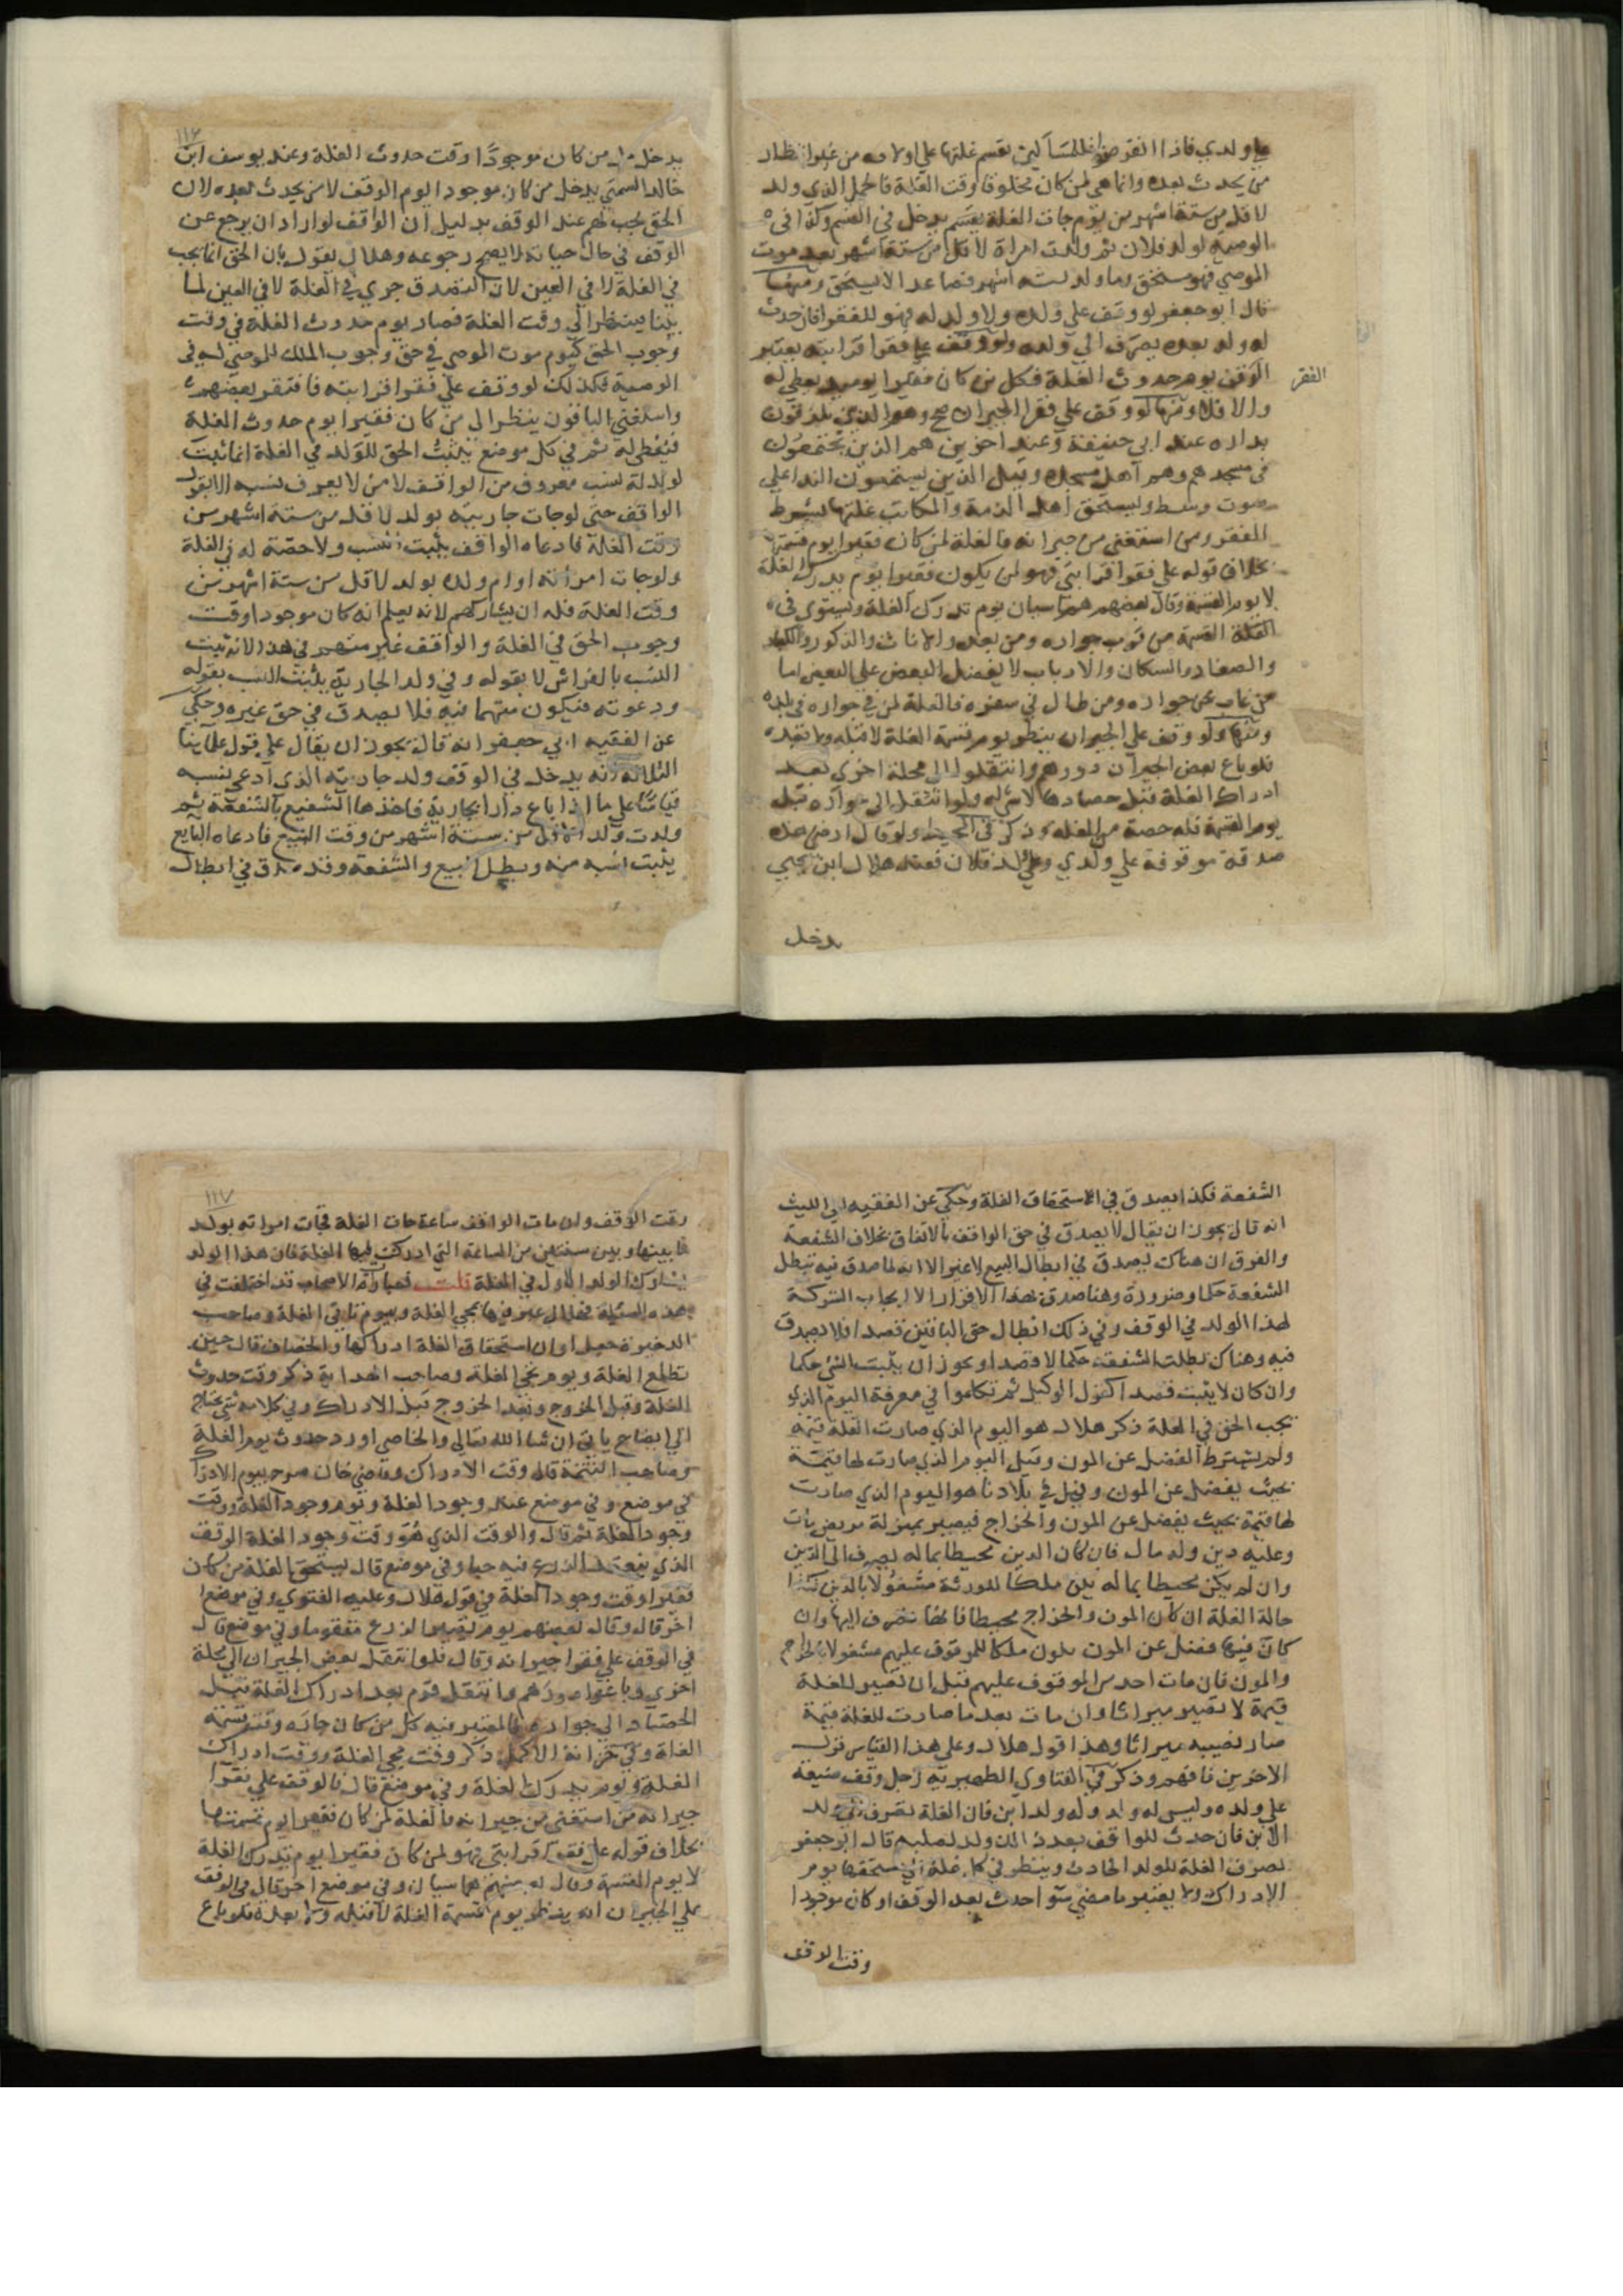 علي ولدي فاذا انقرضوا فللمساكين تقسم غلتها علي اولاده من غير انتظار
من يحدث بعده وانما هي لمن كان مخلوقا وقت الغلة فالحمل الذي ولد
لاقل من ستة اشهر من يوم جات الغلة يقسم يدخل في القسم وكذا في
الوصية لولد فلان ثم ولدت امراة لاقل من ستة اشهر بعد موت
الموصي فهو مستحق وما ولد لستة اشهر فصاعدا لا يستحق ومنها
قال ابو جعفر لو وقف علي ولده ولا ولد له فهو للفقرا فان حدث
له ولد بعده يصرف الي ولده ولو وقف علي فقرا قرابته يعتبر
الفقر
الوقف يوم حدوث الغلة فكل من كان فقيرا يوميد يعطي له
والا فلا ومنها لو وقف علي فقرا الجيران صح وهم الذين يلازقون
بداره عند ابي حنيفة وعند اخرين هم الذين يجتمعون
في مسجدهم وهم اهل مسجده وقيل الذين يستمعون الندا علي
صوت وسط ويستحق اهل الذمة والمكاتب غلتها بشرط
الفقر ومن استغني من جيرانه فالغلة لمن كان فقيرا يوم قسمتها
بخلاف قوله علي فقرا قرابتي فهو لمن يكون فقيرا يوم يدرك الغلة
لا يوم القسمة وقال بعضهم هما سيان يوم تدرك الغلة ويستوي في
الغلة القسمة من قرب جواره ومن بعد والاناث والذكور والكبار
والصغار والسكان والارباب لا يفضل البعض علي البعض اما
من غاب عن جواره ومن طال في سفره فالغلة لمن في جواره في بلده
ومنها ولو وقف علي الجيران ينظر يوم قسمة الغلة لا قبله ولا بعده
فلو باع بعض الجيران دورهم وانتقلوا الي محلة اخري بعد
ادراك الغلة قبل حصادها لا شي له ولو انتقل الي جواره قبله
يوم القسمة فله حصة من الغلة وذكر في المحيط ولو قال ارضي هذه
صدقة موقوفة علي ولدي وعلي ولد فلان فعند هلال ابن يحيي
يدخل
١١٦
يدخل من كان موجودا وقت حدوث الغلة وعند يوسف ابن
خالد السمتي يدخل من كان موجود ايوم الوقف لا من يحدث بعده لان
الحق يجب لهم عند الوقف بدليل ان الواقف لو اراد ان يرجع عن
الوقف في حال حياته لا يصح رجوعه وهلال يقول بان الحق انما يجب
في الغلة لا في العين لان التصدق جري في الغلة لا في العين لما
بينا فينظر الي وقت الغلة فصار يوم حدوث الغلة في وقت
وجوب الحق كيوم موت الموصي في حق وجوب الملك للموصي له في
الوصية فكذلك لو وقف علي فقرا قرابته فافتقر بعضهم
واستغني الباقون ينظر الي من كان فقيرا يوم حدوث الغلة
فيعطي له ثم في كل موضع يثبت الحق للولد في الغلة انما يثبت
لولد له نسب معروف من الواقف لا من لا يعرف نسبه الا بقول
الواقف حتي لو جات جاريته بولد لاقل من ستة اشهر من
وقت الغلة فادعاه الواقف يثبت نسب ولا حصة له في الغلة
ولو جات امراته او ام ولده بولد لاقل من ستة اشهر من
وقت الغلة فله ان يشاركهم لانه يعلم انه كان موجودا وقت
وجوب الحق في الغلة والواقف غير متهم في هذا لانه يثبت
النسب بالفراش لا بقوله وفي ولد الجارية يثبت النسب بقوله
ودعوته فيكون متهما فيه فلا يصدق في حق غيره وحكي
عن الفقيه ابي جعفر انه قال يجوز ان يقال علي قول علماينا
الثلاثة انه يدخل في الوقف ولد جاريته الذي ادعي نسبه
قياسا علي ما اذا باع دارا بجارية فاخذها الشفيع بالشفعة ثم
ولدت ولدا لاقل من ستة اشهر من وقت البيع فادعاه البايع
يثبت نسبه منه ويبطل البيع والشفعة وقد صدق في ابطال
الشفعة فكذا يصدق في الاستحقاق الغلة وحكي عن الفقيه ابي الليث
انه قال يجوز ان يقال لا يصدق في حق الواقف بالاتفاق بخلاف الشفعة
والفرق ان هناك يصدق في ابطال البيع لا غير الا انه لما صدق فيه تبطل
الشفعة حكما وضرورة وهنا صدق بهذا الاقرار الا ايجاب الشركة
لهذا الولد في الوقف وفي ذلك ابطال حق الباقين قصدا فلا يصدق
فيه وهناك بطلت الشفعة حكما لا قصدا ويجوز ان يثبت الشي حكما
وان كان لا يثبت قصدا كعزل الوكيل ثم تكلموا في معرفة اليوم الذي
يجب الحق في الغلة ذكر هلال هو اليوم الذي صارت الغلة قيمة
ولم يشترط الفضل عن المون وقيل اليوم الذي صارت لها قيمة
بحيث يفضل عن المون وقيل في بلادنا هو اليوم الذي صارت
لها قيمة بحيث يفضل عن المون والخراج فيصير بمنزلة مريض مات
وعليه دين وله مال فان كان الدين محيطا بماله يصرف الي الدين
وان لم يكن محيطا بماله يكن ملكا للورثة مشغولا بالدين فكذا
حالة الغلة ان كان المون والخراج محيطا فانها تصرف اليها وان
كان فيها فضل عن المون يكون ملكا للموقوف عليهم مشغولا بالخراج
والمون فان مات احد من الموقوف عليهم قبل ان تصير للغلة
قيمة لا تصير ميراثا وان مات بعد ما صارت للغلة قيمة
صار نصيبه ميراثا وهذا قول هلال وعلي هذا القياس قول
الاخرين فافهم وذكر في الفتاوي الظهيرية رجل وقف ضيعة
علي ولده وليس له ولد وله ولد ابن فان الغلة تصرف الي ولد
الابن فان حدث للواقف بعد ذلك ولد لصلبه قال ابو جعفر
تصرف الغلة للولد الحادث وينظر في كل غلة الي مستحقها يوم
الادراك ولا يعتبر ما مضي سوا حدث بعد الوقف او كان موجودا
وقت الوقف
١١٧
وقت الوقف وان مات الواقف ساعة جات الغلة فجات امراته بولد
ما بينها وبين سنتين من الساعة التي ادركت فيها الغلة فان هذا الولد
يشارك الولد الاول في الغلة قلت فعبارة الاصحاب قد اختلفت في
هذه المسئلة فهلال عبر فيها بمجي الغلة وبيوم تاتي الغلة وصاحب
الذخيرة جعل اوان استحقاق الغلة ادراكها والخصاف قال حين
تطلع الغلة ويوم تجي الغلة وصاحب الهداية ذكر وقت حدوث
الغلة وقبل الخروج وبعد الخروج قبل الادراك وفي كلامه شي يحتاج
الي ايضاح ياتي ان شا الله تعالي والخاصي اورد حدوث يوم الغلة
وصاحب التتمة قال وقت الادراك وقاضي خان صرح بيوم الادراك
في موضع وفي موضع عند وجود الغلة ويوم وجود الغلة ووقت
وجود الغلة ثم قال والوقت الذي هو وقت وجود الغلة الوقت
الذي ينعقد الزرع فيه حبا وفي موضع قال يستحق الغلة من كان
فقيرا وقت وجود الغلة في قول هلال وعليه الفتوي وفي موضع
اخر قال وقال بعضهم يوم يصير الزرع متقوما وفي موضع قال
في الوقف علي فقرا جيرانه وقال فلو انتقل بعض الجيران الي محلة
اخري وباعوا دورهم وانتقل قوم بعد ادراك الغلة قبل
الحصاد الي جواره فالمعتبر فيه كل من كان جاره وقت قسمة
الغلة وفي خزانة الاكمل ذكر وقت مجي الغلة ووقت ادراك
الغلة ويوم يدرك الغلة وفي موضع قال في الوقف علي فقرا
جيرانه من استغني من جيرانه فالغلة لمن كان فقيرا يوم قسمتها
بخلاف قوله علي فقرا قرابتي فهو لمن كان فقيرا يوم تدرك الغلة
لا يوم القسمة وقال بعضهم هما سيان وفي موضع اخر قال في الوقف
علي الجيران انه ينظر يوم قسمة الغلة لا قبله ولا بعده فلو باع